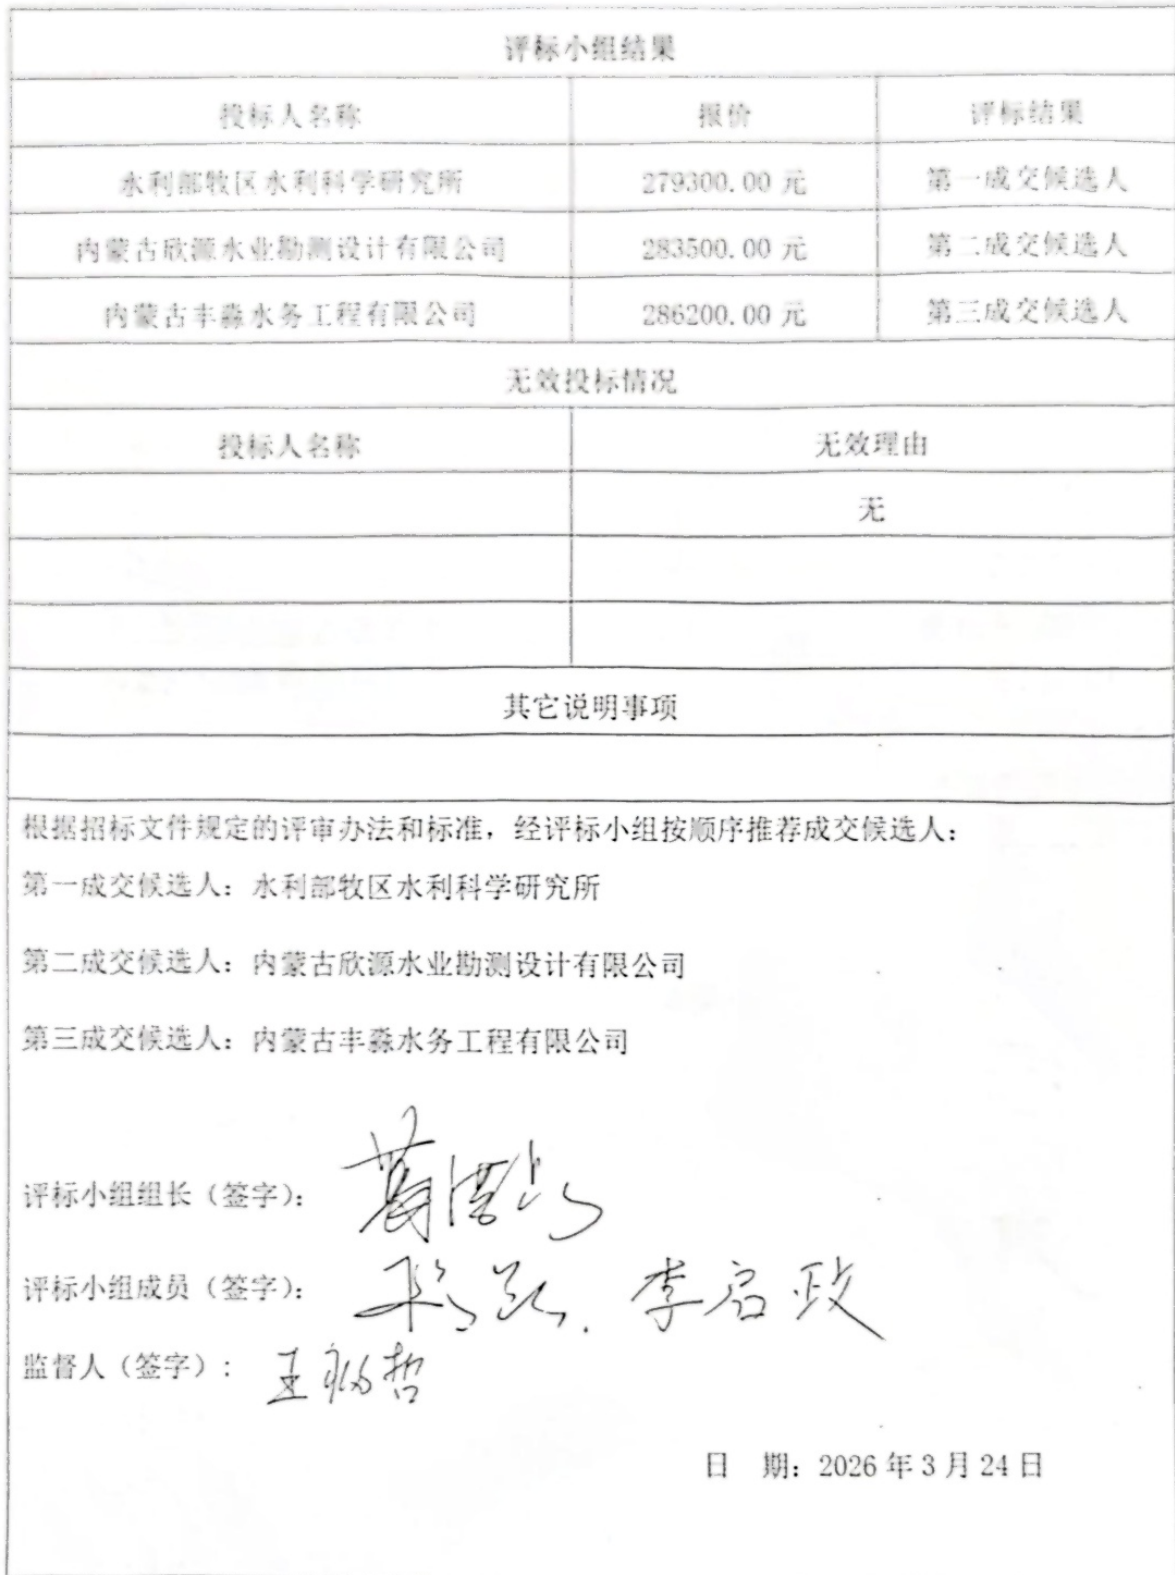 评标小组结果
投标人名称 报价 评标结果
水利部牧区水利科学研究所 279300.00 元 第一成交候选人
内蒙古欣源水业勘测设计有限公司 283500.00 元 第二成交候选人
内蒙古丰淼水务工程有限公司 286200.00 元 第三成交候选人
无效投标情况
投标人名称 无效理由
无
其它说明事项
根据招标文件规定的评审办法和标准，经评标小组按顺序推荐成交候选人：
第一成交候选人：水利部牧区水利科学研究所
第二成交候选人：内蒙古欣源水业勘测设计有限公司
第三成交候选人：内蒙古丰淼水务工程有限公司
评标小组组长（签字）：
评标小组成员（签字）： 李启政
监督人（签字）: 王 哲
日 期：2026 年 3 月 24 日